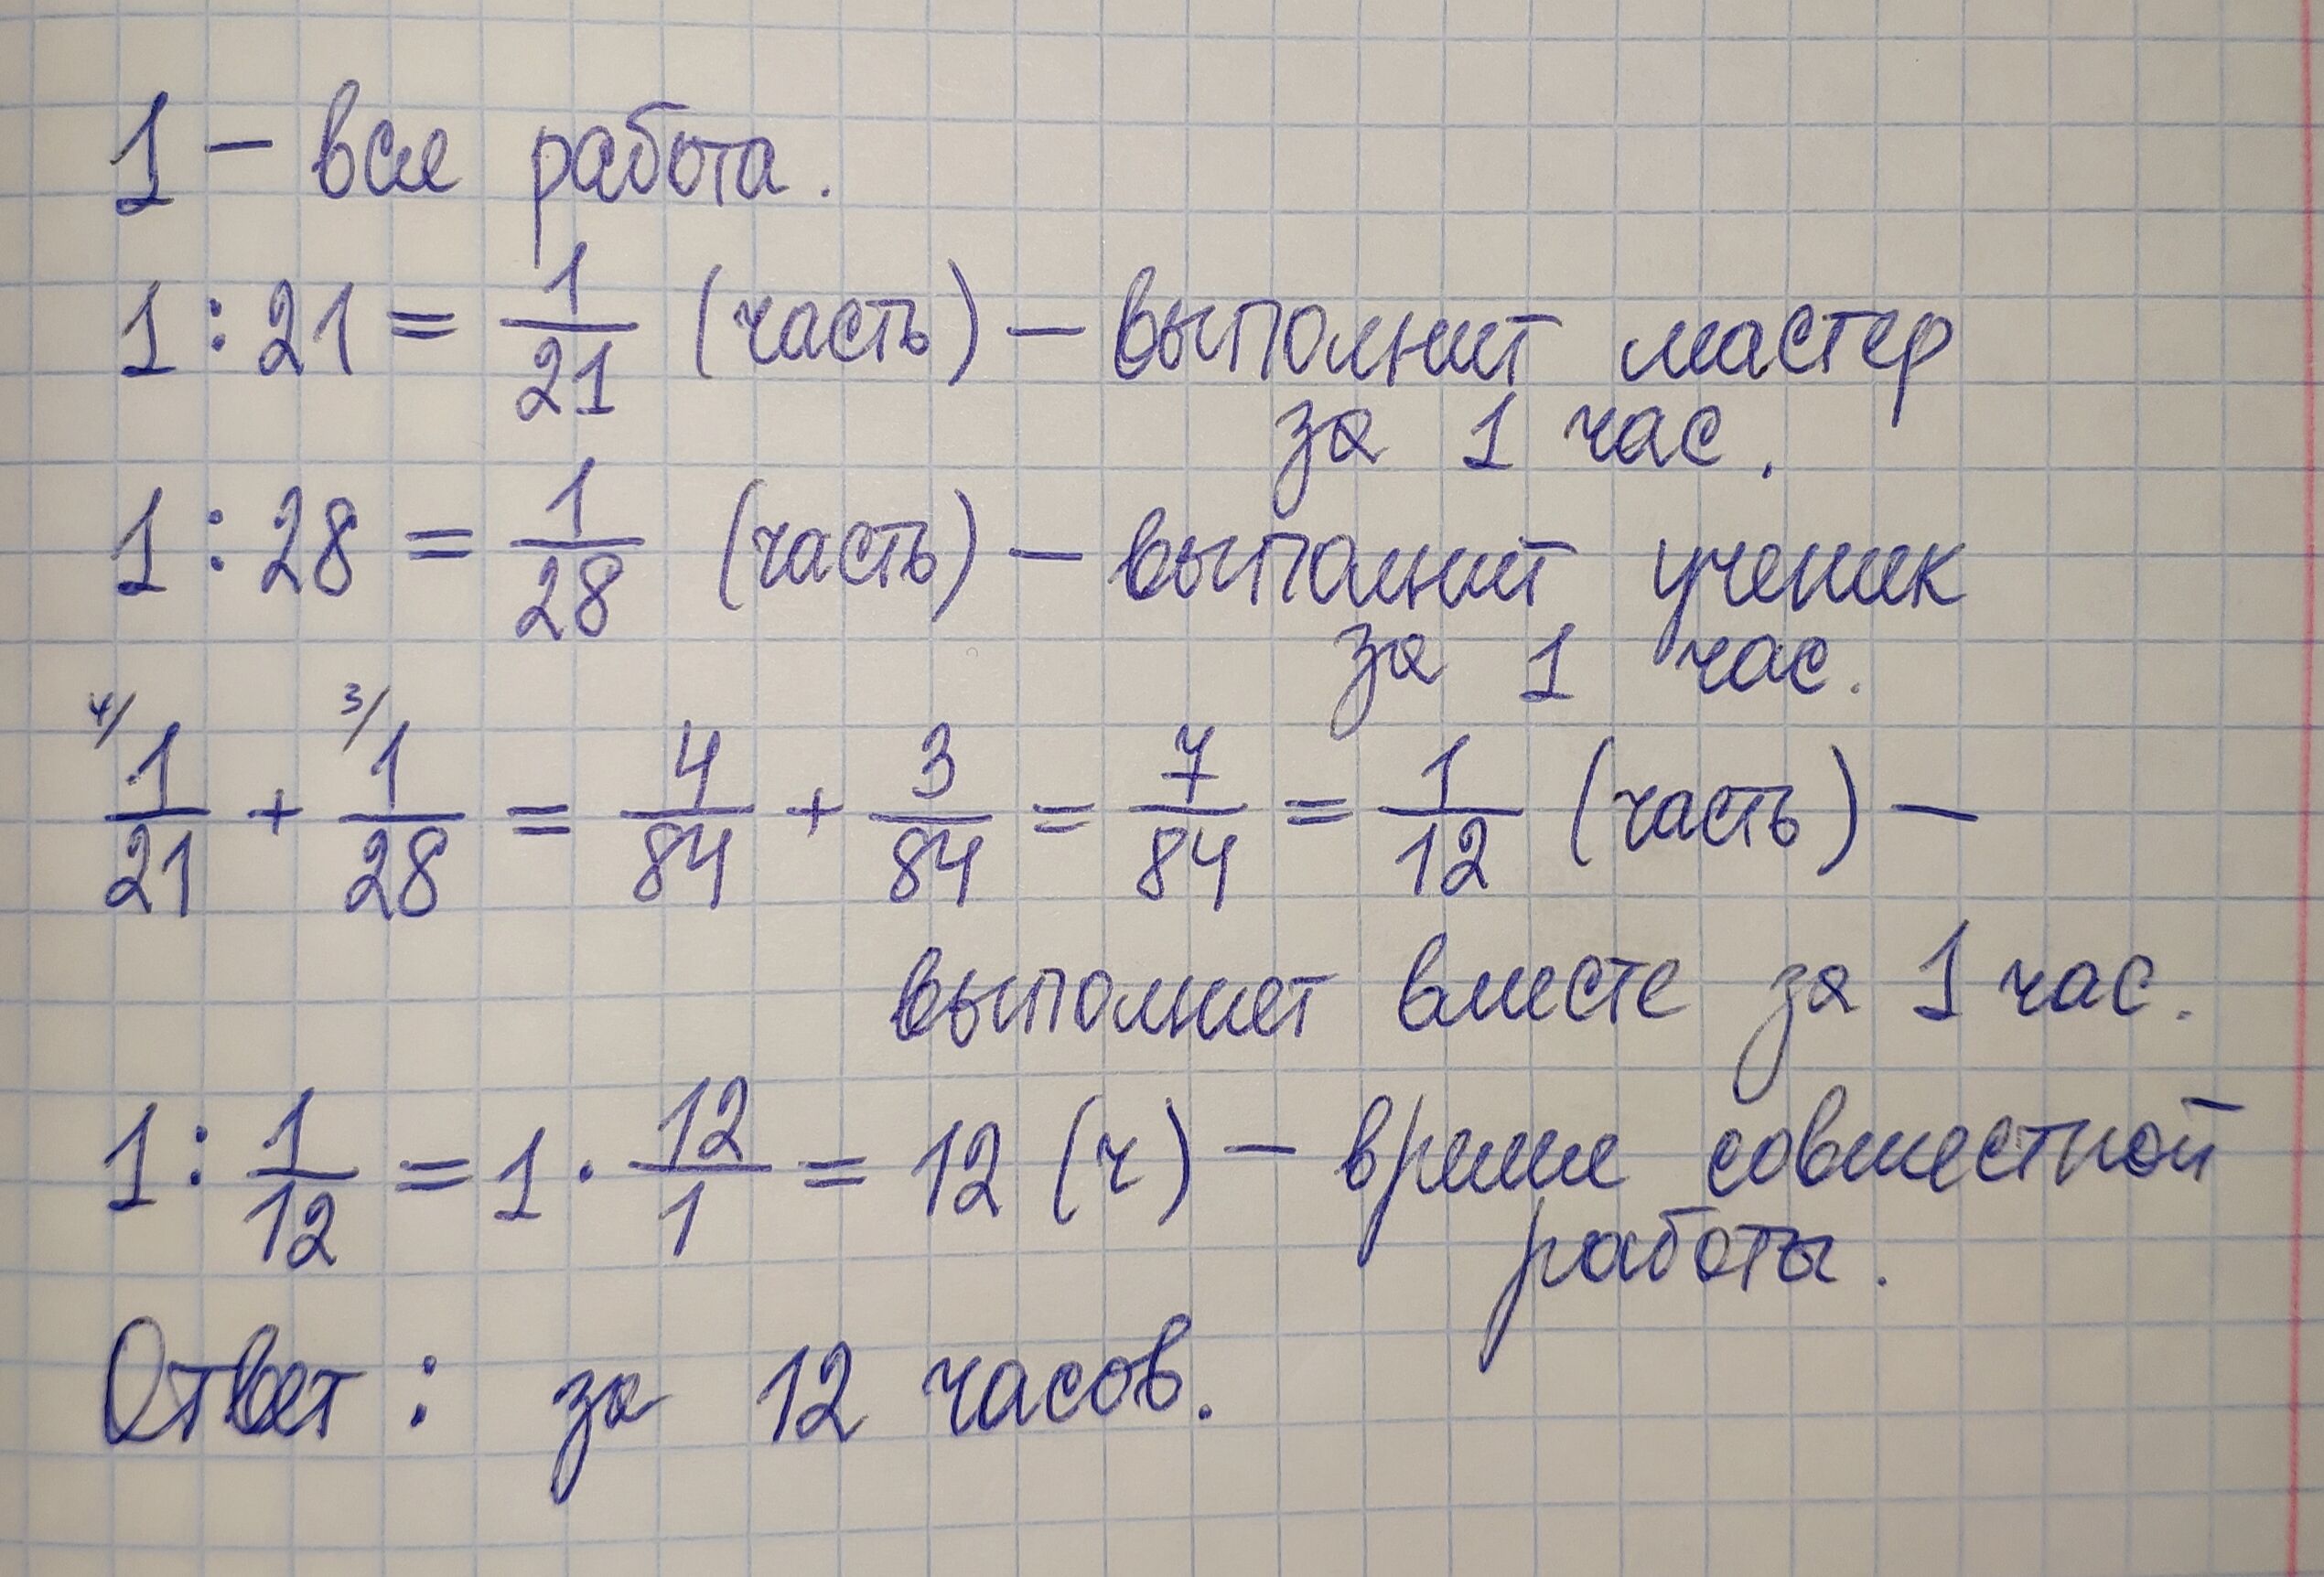 1 – вся работа.
1 : 21 = 1/21 (часть) – выполнит мастер
за 1 час.
1 : 28 = 1/28 (часть) – выполнит ученик
за 1 час.
4/ 1/21 + 3/ 1/28 = 4/84 + 3/84 = 7/84 = 1/12 (часть) –
выполнят вместе за 1 час.
1 : 1/12 = 1 · 12/1 = 12 (ч) – время совместной
работы.
Ответ : за 12 часов.